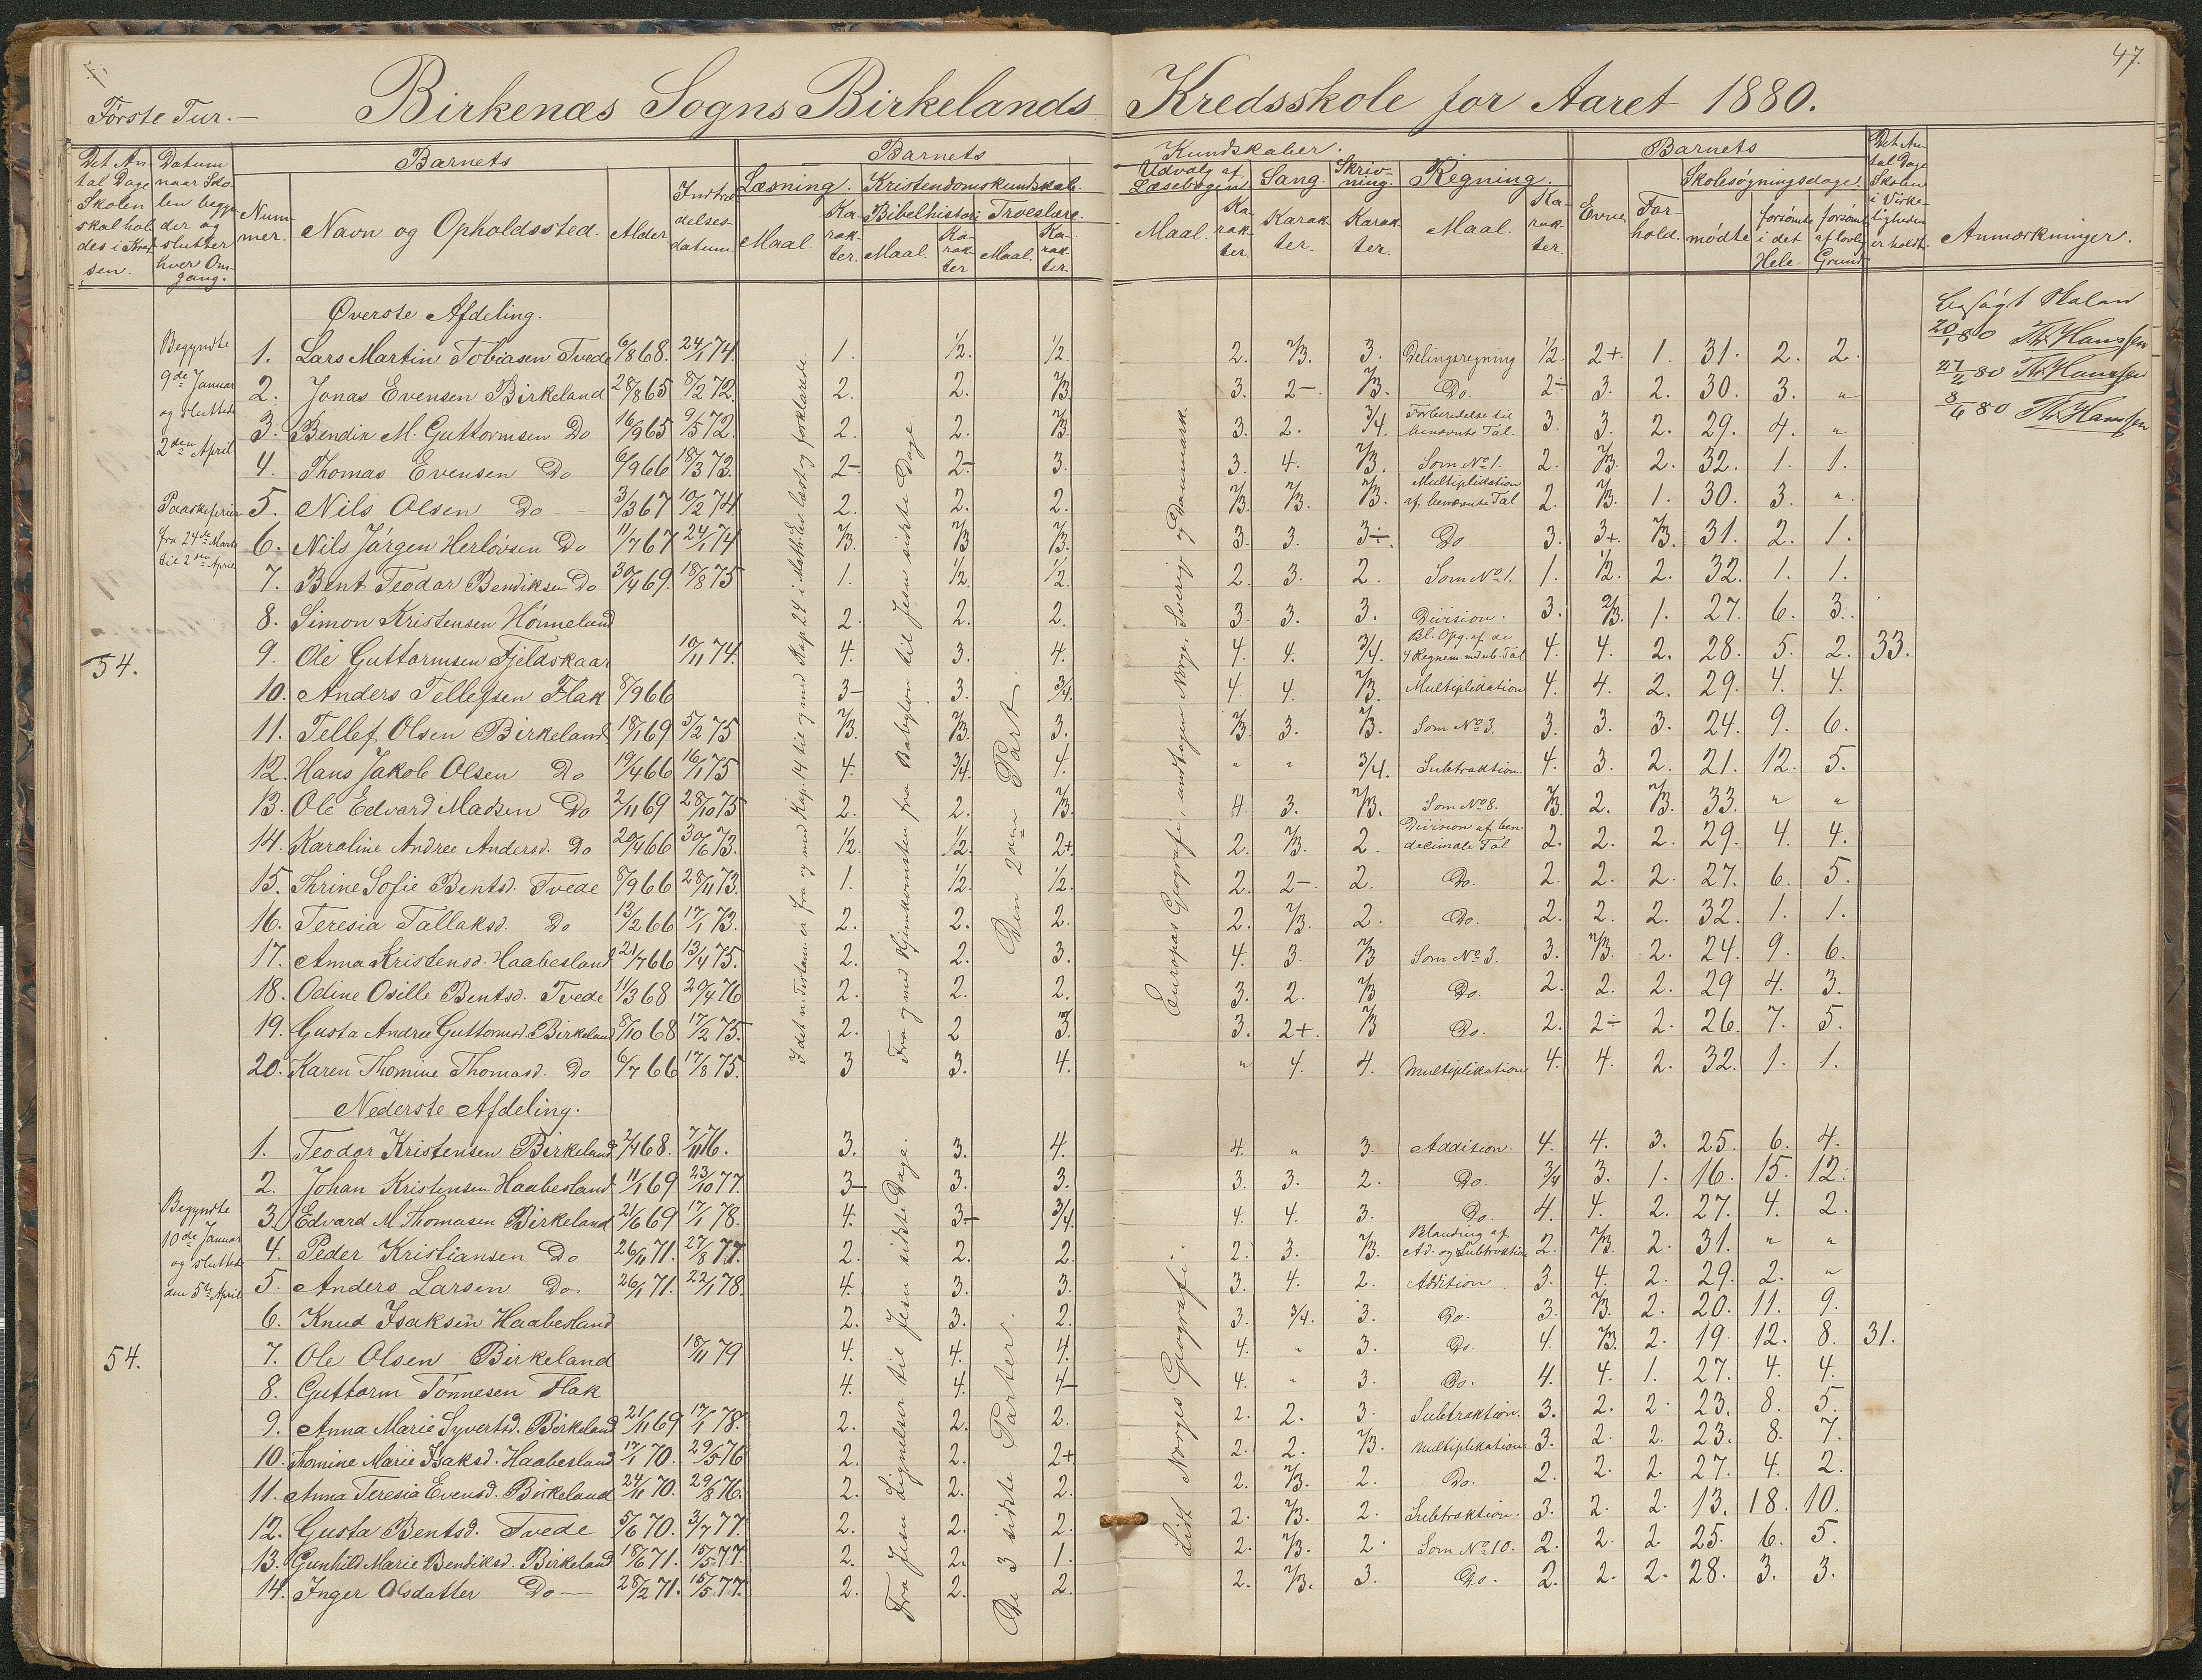 47.
Første Tur. —
Birkenæs Sogns Birkelands Kredsskole for Aaret 1880.
Det Antal Dage Skolen skal holdes i Kredsen.
Datum naar Skolen begynder og slutter hver Omgang.
Barnets
Nummer.
Navn og Opholdssted.
Alder
Indtrædelsesdatum.
Barnets
Læsning.
Maal
Karakter.
Kristendomskundskab.
Bibelhistori
Maal.
Karakter
Troeslære.
Maal.
Karakter.
Kundskaber.
Udvalg af Læsebogen
Maal.
Karakter.
Sang.
Karakter.
Skrivning.
Karakter.
Regning.
Maal.
Karakter.
Barnets
Evne
Forhold.
Skolesøgningsdage.
mødte
forsømte i det Hele
forsømt af lovlig Grund
Det Antal Dage Skolen i Virkeligheden er holdt.
Anmærkninger.
Øverste Afdeling.
Begyndte 9de Januar og sluttede 2den April
Paaskeferien fra 24de Marts til 2den April
54.
1. Lars Martin Tobiasen Tvede 6/8 68. 24/1 74. 1. 1/2. 1/2. 2. 2/3. 3. Delingsregning 1/2. 2+. 1. 31. 2. 2.
2. Jonas Evensen Birkeland 28/8 65 8/2 72. 2. 2. 2/3. 3. 2-. 2/3. Do. 2÷ 3. 2. 30. 3. "
3. Bendik M. Guttormsen Do 16/9 65 9/5 72. 2. 2. 2/3. 3. 2. 3/4. Forberedelse til benævnte Tal. 3. 3. 2. 29. 4. "
4. Thomas Evensen Do 6/9 66 18/3 73. 2-. 2-. 3. 3. 4. 2/3. Som No 1. 2. 2/3. 2. 32. 1. 1.
5. Nils Olsen Do — 3/3 67 10/2 74 2. 2. 2. 2/3. 2/3. 2/3. Multiplikation af benævnte Tal 2. 2/3. 1. 30. 3. "
6. Nils Jørgen Herlovsen Do 11/7 67 24/1 74 2/3. 2/3 2/3. 3. 3. 3÷. Do 3. 3+. 2/3. 31. 2. 1.
7. Bent Teodor Bendiksen Do 30/4 69. 18/8 75 1. 1/2. 1/2. 2. 3. 2. Som No 1. 1. 1/2. 2. 32. 1. 1.
8. Simon Kristensen Hønneland 2. 2. 2. 3. 3. 3. Division. 3. 2/3. 1. 27. 6. 3.
9. Ole Guttormsen Fjeldskaar 10/11 74. 4. 3. 4. 4. 4. 3/4. Bl. Opg. af de 4 Regnem. med ub. Tal 4. 4. 2. 28. 5. 2. 33.
10. Anders Tellefsen Flak 8/9 66 3- 3. 3/4. 4. 4. 2/3. Multiplikation 4. 4. 2. 29. 4. 4.
11. Tellef Olsen Birkeland 18/1 69 5/2 75 2/3. 2/3. 3. 2/3. 3. 2/3. Som No 3. 3. 3. 3. 24. 9. 6.
12. Hans Jakob Olsen Do 19/4 66 16/1 75 4. 3/4. 4. " " 3/4. Subtraktion. 4. 3. 2. 21. 12. 5.
13. Ole Edvard Madsen Do 2/11 69 28/10 75 2. 2. 2/3. 4. 3. 2/3. Som No 8. 2/3 2. 2/3. 33. " "
14. Karoline Andree Andersd. Do 20/4 66 30/6 73. 1/2. 1/2. 2+. 2. 2/3. 2. Division af ben. decimale Tal 2. 2. 2. 29. 4. 4.
15. Thrine Sofie Bentsd. Tvede 8/9 66 28/11 73. 1. 1/2. 1/2. 2. 2-. 2. Do. 2. 2. 2. 27. 6. 5.
16. Teresia Tallaksd. Do 13/2 66 17/1 73. 2. 2. 2. 2. 2/3. 2. Do. 2. 2. 2. 32. 1. 1.
17. Anna Kristensd. Haabesland 21/7 66 13/4 75. 2. 2. 3. 4. 3. 2/3 Som No 3. 3. 2/3. 2. 24. 9. 6.
18. Odine Osille Bentsd. Tvede 11/3 68 20/4 76 2. 2. 2. 3. 2. 2/3 Do. 2. 2. 2. 29 4. 3.
19. Gusta Andree Guttormsd. Birkeland 8/10 68 17/2 75. 2. 2 3. 3. 2+. 2/3 Do. 2. 2÷ 2. 26. 7. 5.
20. Karen Thomine Thomasd. Do 6/7 66 17/8 75. 3 3. 4. " 4. 4. Multiplikation 4. 4. 2. 32. 1. 1.
I det n. Testam. er fra og med Kap. 14 til og med Kap. 24 i Math. Ev. læst og forklarede.
Fra og med Hjemkomsten fra Babylon til Jesu sidste Dage
Den 2den Part.
Europas Geografi, undtagen Norge, Sverig og Danmark.
Besøgt Skolen
20/1 80 Th. Hanssen
27/2 80 Th. Hanssen
8/6 80 Th. Hanssen
Nederste Afdeling.
Begyndte 10de Januar og sluttede den 5te April
54.
1. Teodor Kristensen Birkeland 2/4 68. 7/11 76. 3. 3. 4. 4. " 3. Addition. 4. 4. 3. 25. 6. 4.
2. Johan Kristensen Haabesland 11/1 69 23/10 77. 3- 3. 3. 3. 3. 2. Do. 3/4 3. 1. 16. 15. 12.
3. Edvard M. Thomasen Birkeland 21/6 69 17/1 78. 4. 3- 3/4. 4. 4. 3. Do. 4. 4. 2. 27. 4. 2.
4. Peder Kristiansen Do 26/11 71. 27/8 77. 2. 2. 2. 2. 3. 2/3. Blanding af Ad. og Subtraktion 2. 2/3. 2. 31. " "
5. Anders Larsen Do. 26/1 71. 22/1 78. 4. 3. 3. 3. 4. 2. Addition 3. 4. 2. 29. 2. "
6. Knud Isaksen Haabesland 2. 3. 2. 3. 3/4. 3. Do. 3. 2/3. 2. 20. 11. 9.
7. Ole Olsen Birkeland 18/11 79 4. 4. 4. 4. " 3. Do. 4. 2/3. 2. 19. 12. 8. 31.
8. Guttorm Tønnesen Flak 4. 4. 4- 4. " 3. Do. 4. 4. 1. 27. 4. 4.
9. Anna Marie Syvertsd. Birkeland 21/11 69 17/1 78. 2. 2. 2. 2. 2. 3. Subtraktion. 3. 2. 2. 23. 8. 5.
10. Thomine Marie Isaksd. Haabesland 17/1 70. 29/5 76 2. 2. 2+ 2. 2. 2/3. Multiplikation 3. 2. 2. 23. 8. 7.
11. Anna Teresia Evensd. Birkeland 24/11 70. 29/8 76. 2. 2. 2. 2. 2/3. 2. Do. 2. 2. 2. 27. 4. 2.
12. Gusta Bentsd. Tvede 5/6 70. 3/7 77. 2. 2. 2. 2. 2/3. 2. Subtraktion. 3. 2. 2. 13. 18. 10.
13. Gunhild Marie Bendiksd. Birkeland 18/6 71. 15/5 77. 2. 2. 1. 2. 2/3. 2. Som No 10. 2. 2. 2 25. 6. 5.
14. Inger Olsdatter Do — 28/2 71. 15/5 77. 2. 2. 2. 2. 2/3. 3. Do. 2. 2. 2. 28. 3. 3.
Fra Jesu Lignelser til Jesu sidste Dage.
De 3 sidste Parter.
Lidt Norges Geografi.